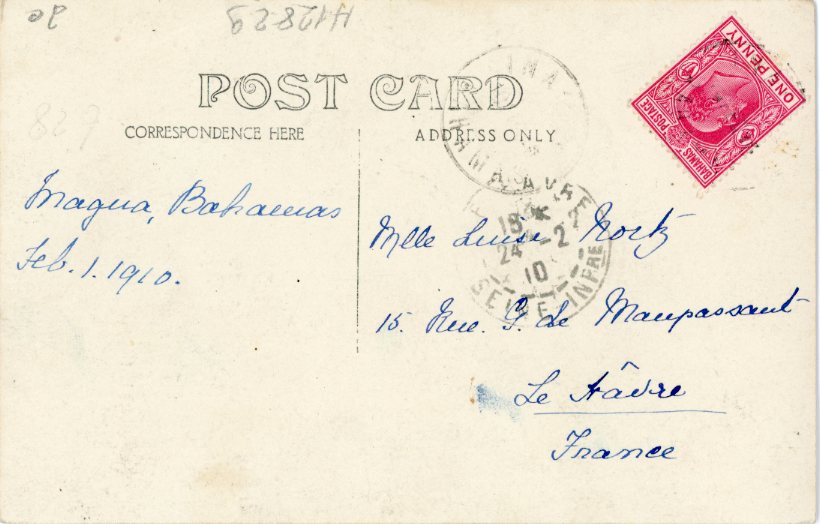 H12829
829
POST CARD
CORRESPONDENCE HERE
ADDRESS ONLY
BAHAMAS POSTAGE
ONE PENNY
INAGUA
BAHAMAS
HAVRE
18
24 - 2
10
SEINE INFRE
Inagua, Bahamas
Feb. 1. 1910.
Mlle Luise
15. Rue. G. de Maupassant
Le Hâvre
France